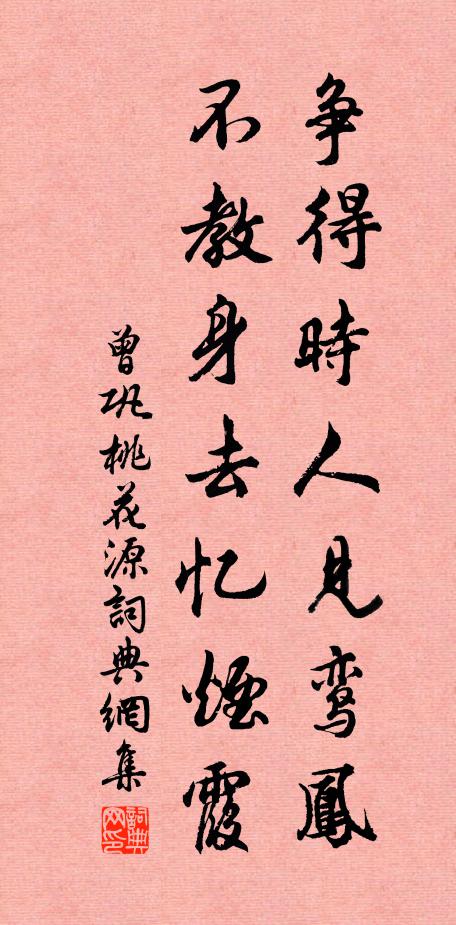 争得時人見鸾鳳
不教身去忆煙霞
曾巩桃花源詞典網集
詞典网印